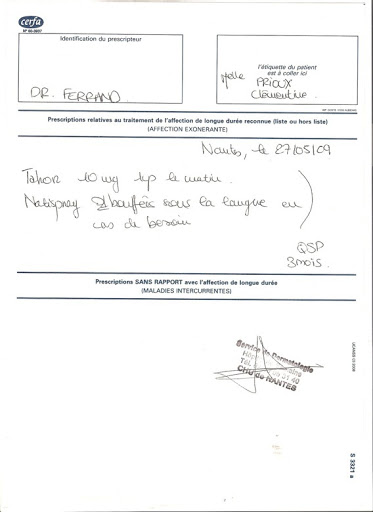 cerfa
N° 60-3937
Identification du prescripteur
DR. FERRAND
l'étiquette du patient
est à coller ici
Melle PRIOUX
Clémentine
Prescriptions relatives au traitement de l'affection de longue durée reconnue (liste ou hors liste)
(AFFECTION EXONERANTE)
Nantes, le 27/05/09
Tahor 10 mg 1cp le matin.
Natispray bouffée sous la langue en
cas de besoin
QSP
3 mois.
Prescriptions SANS RAPPORT avec l'affection de longue durée
(MALADIES INTERCURRENTES)
Service de Dermatologie
CHU de NANTES
S 3321 a